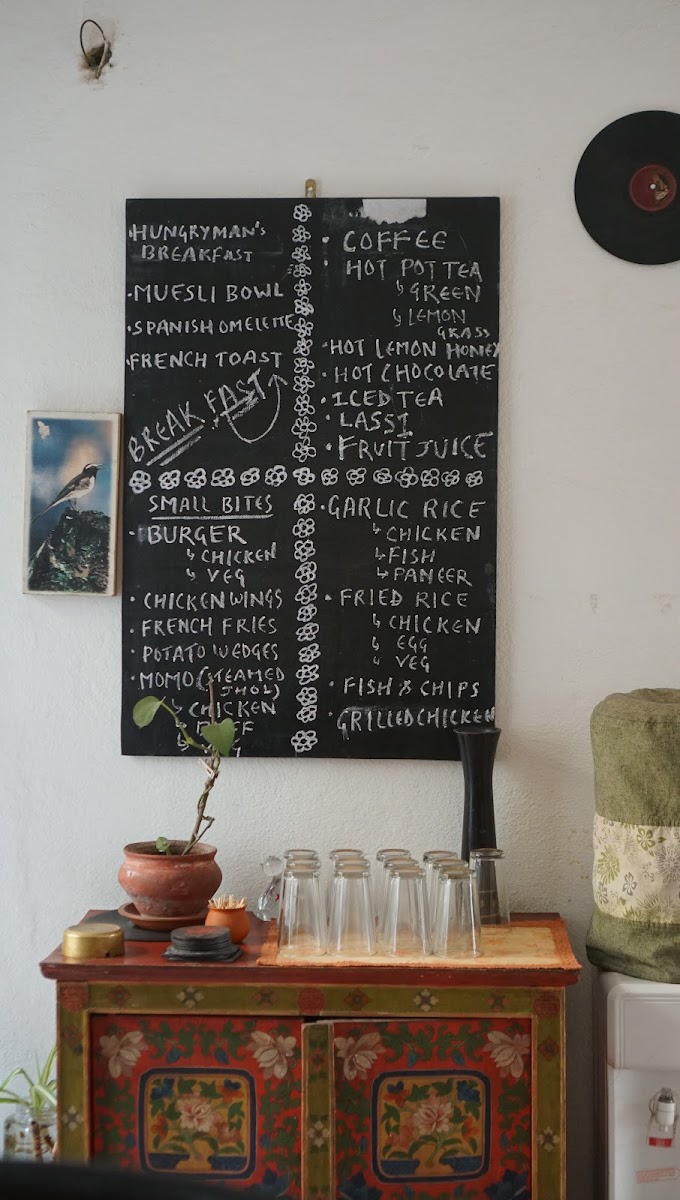 ·HUNGRYMAN'S
BREAKFAST
·MUESLI BOWL
·SPANISH OMELETTE
·FRENCH TOAST
BREAKFAST
SMALL BITES
· BURGER
↳ CHICKEN
↳ VEG
· CHICKEN WINGS
· FRENCH FRIES
· POTATO WEDGES
· MOMO (STEAMED
JHOL)
↳ CHICKEN
· COFFEE
· HOT POT TEA
↳ GREEN
↳ LEMON
GRASS
· HOT LEMON HONEY
· HOT CHOCOLATE
· ICED TEA
· LASSI
· FRUIT JUICE
· GARLIC RICE
↳ CHICKEN
↳ FISH
↳ PANEER
· FRIED RICE
↳ CHICKEN
↳ EGG
↳ VEG
· FISH & CHIPS
· GRILLED CHICKEN